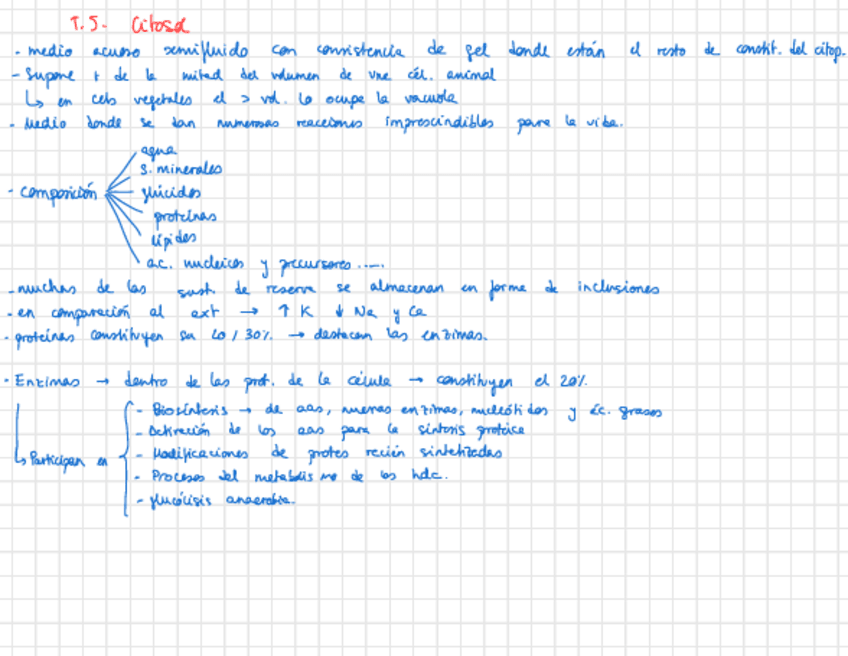 1.5. Citosol
- medio acuoso semifluido con consistencia de gel donde están el resto de constit. del citop.
- Supone + de la mitad del volumen de una cél. animal
↳ en cels vegetales el > vol. lo ocupa la vacuola
- Medio donde se dan numerosas reacciones imprescindibles para la vida.
agua
s. minerales
- composición glúcidos
proteínas
lípidos
ac. nucleicos y precursores .....
- muchas de las sust. de reserva se almacenan en forma de inclusiones
- en comparación al ext → ↑ K ↓ Na y Ca
- proteínas constituyen su 20 / 30% → destacan las enzimas.
- Enzimas → dentro de las prot. de la célula → constituyen el 20%
- Biosíntesis → de aas, nuevas enzimas, nucleótidos y ác. grasos
- Activación de los aas para la síntesis proteica
↳ Participan en - Modificaciones de protes recién sintetizadas
- Procesos del metabolismo de los hdc.
- glucólisis anaerobia.